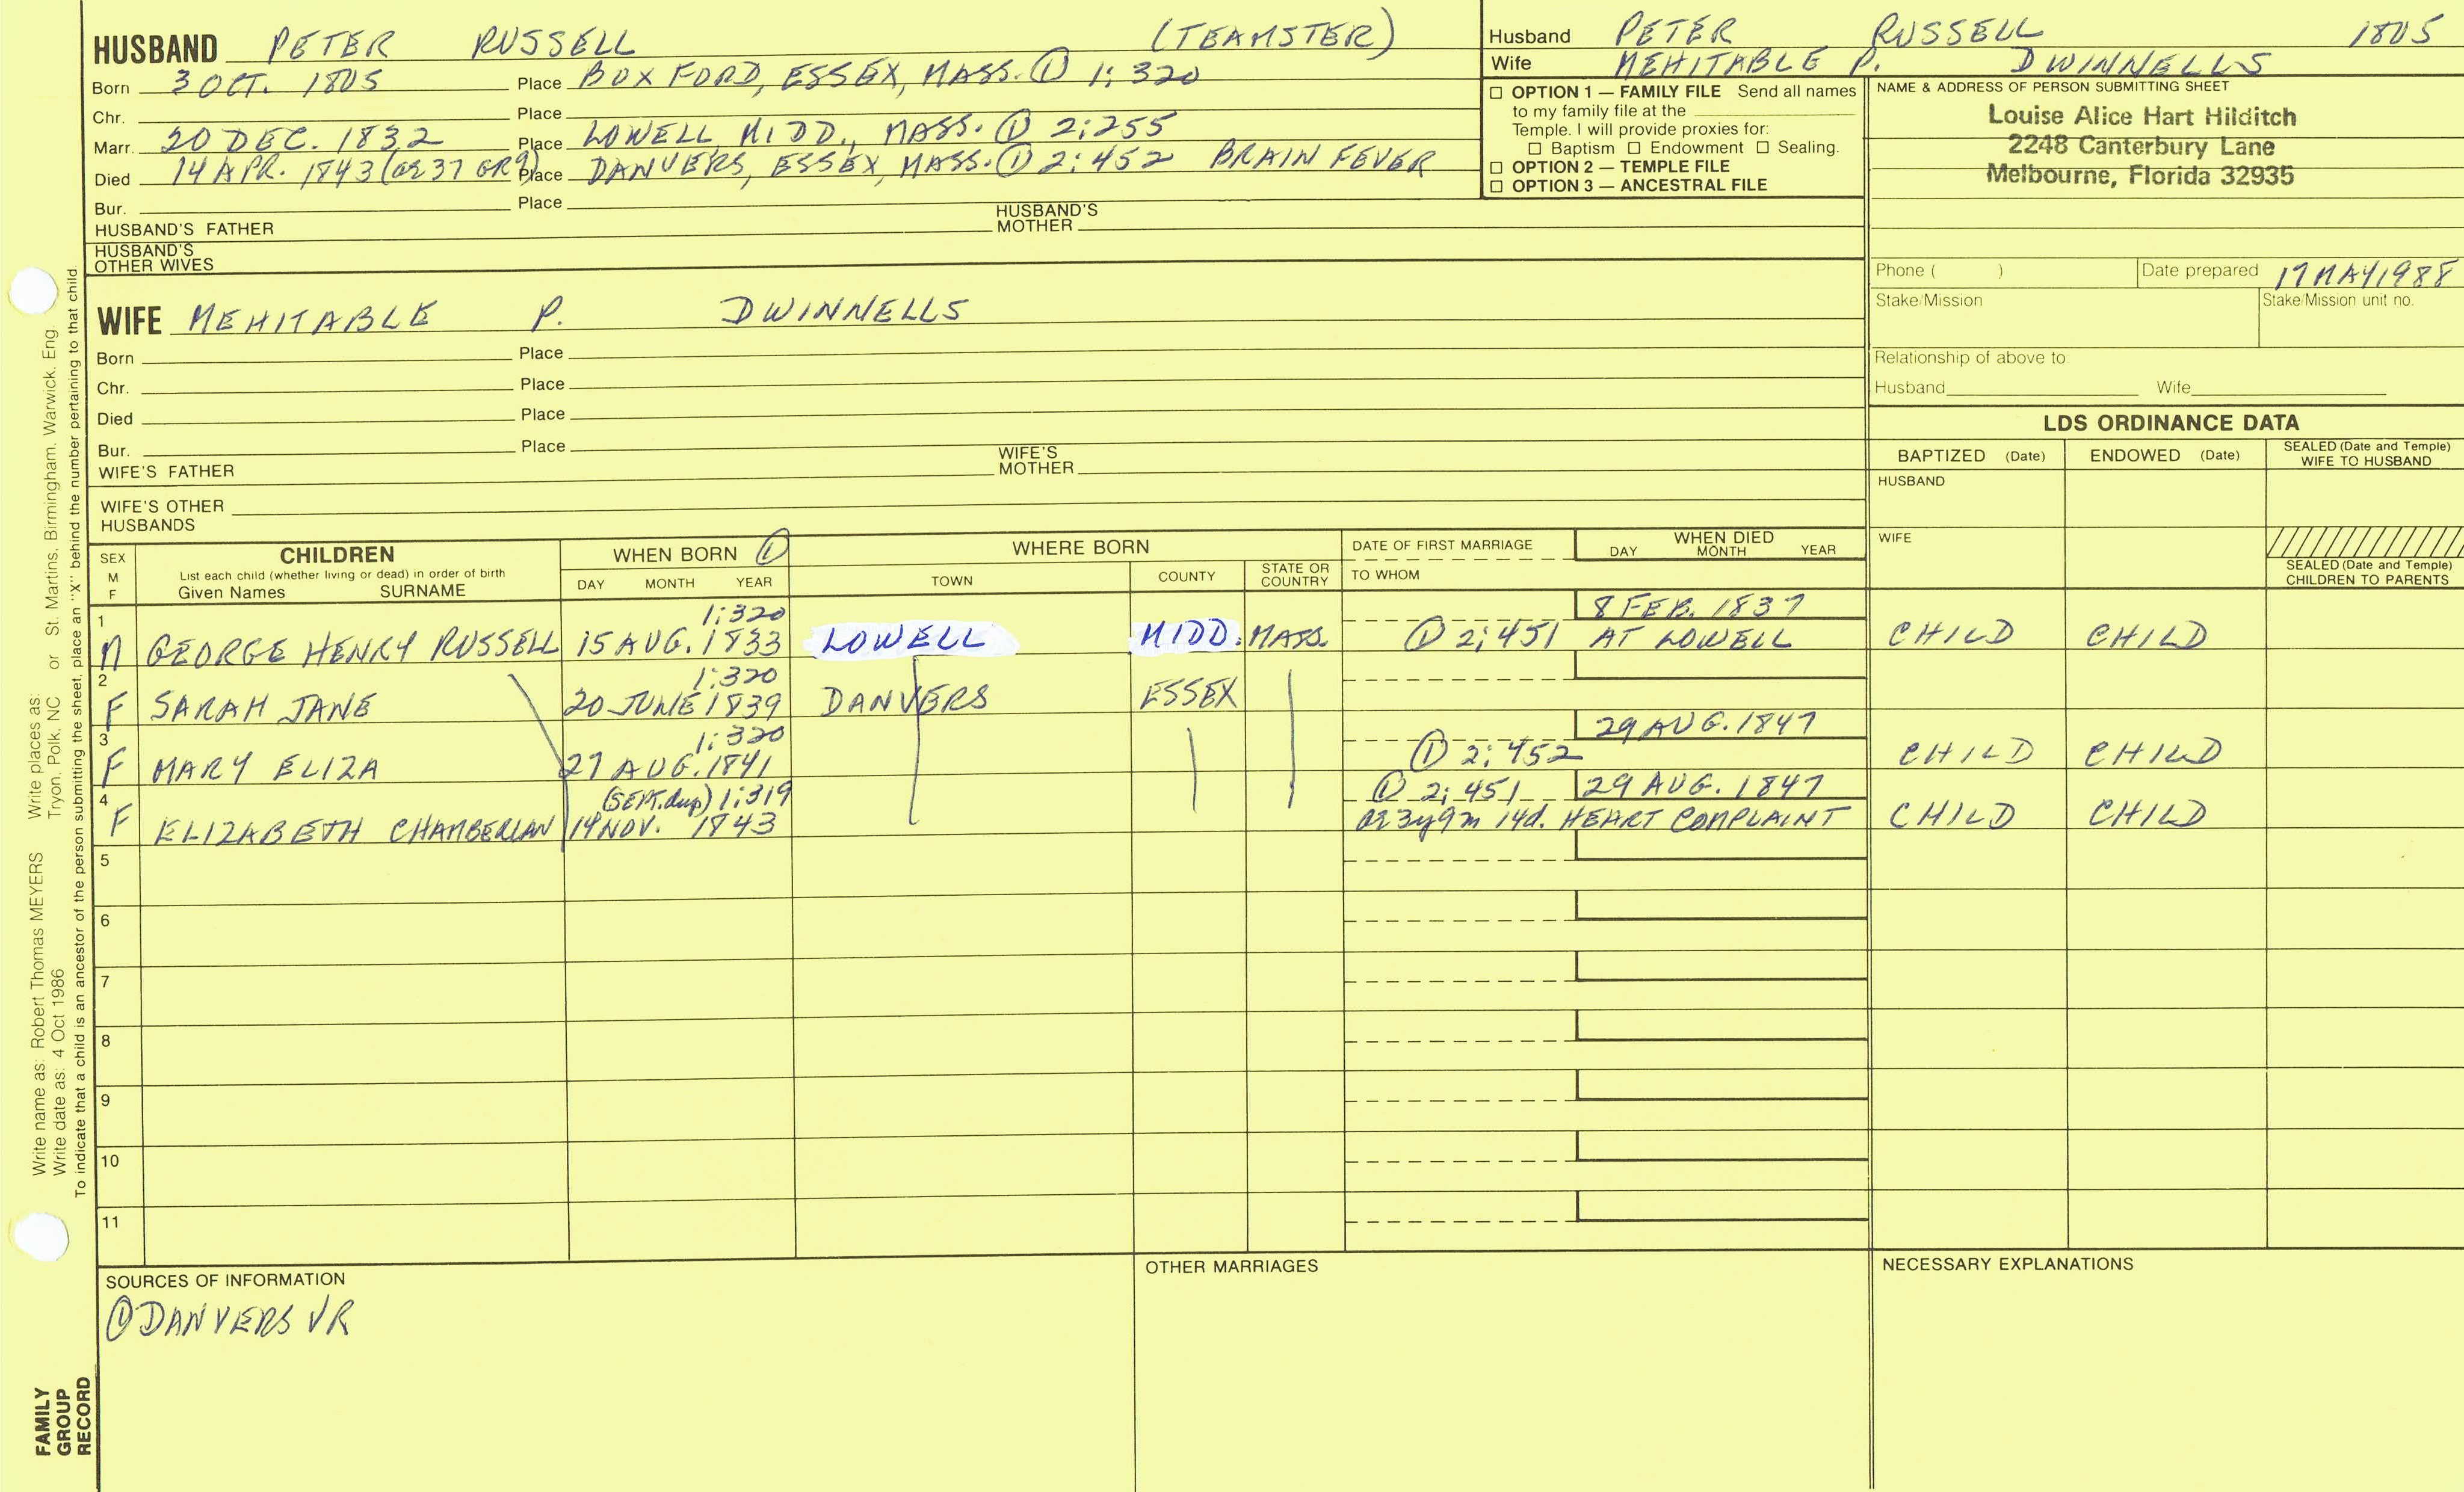 HUSBAND PETER RUSSELL (TEAMSTER)
Born 3 OCT. 1805 Place BOXFORD, ESSEX, MASS. ① 1:320
Chr. Place
Marr. 20 DEC. 1832 Place LOWELL, MIDD., MASS. ① 2:255
Died 14 APR. 1843 (ae 37 GR9) Place DANVERS, ESSEX, MASS. ① 2:452 BRAIN FEVER
Bur. Place
HUSBAND'S FATHER HUSBAND'S MOTHER
HUSBAND'S OTHER WIVES
WIFE MEHITABLE P. DWINNELLS
Born Place
Chr. Place
Died Place
Bur. Place
WIFE'S FATHER WIFE'S MOTHER
WIFE'S OTHER HUSBANDS
Husband PETER RUSSELL 1805
Wife MEHITABLE P. DWINNELLS
☐ OPTION 1 — FAMILY FILE Send all names
to my family file at the
Temple. I will provide proxies for:
☐ Baptism ☐ Endowment ☐ Sealing.
☐ OPTION 2 — TEMPLE FILE
☐ OPTION 3 — ANCESTRAL FILE
NAME & ADDRESS OF PERSON SUBMITTING SHEET
Louise Alice Hart Hilditch
2248 Canterbury Lane
Melbourne, Florida 32935
Phone ( ) Date prepared 17 MAY 1988
Stake/Mission Stake/Mission unit no.
Relationship of above to
Husband Wife
LDS ORDINANCE DATA
BAPTIZED (Date) ENDOWED (Date) SEALED (Date and Temple) WIFE TO HUSBAND
HUSBAND
WIFE
SEALED (Date and Temple) CHILDREN TO PARENTS
SEX M F CHILDREN WHEN BORN ① WHERE BORN DATE OF FIRST MARRIAGE WHEN DIED
List each child (whether living or dead) in order of birth
Given Names SURNAME DAY MONTH YEAR TOWN COUNTY STATE OR COUNTRY TO WHOM DAY MONTH YEAR
1 1:320 8 FEB. 1837
M GEORGE HENRY RUSSELL 15 AUG. 1833 LOWELL MIDD. MASS. ① 2:451 AT LOWELL CHILD CHILD
2 1:320
F SARAH JANE 20 JUNE 1839 DANVERS ESSEX
3 1:320 29 AUG. 1847
F MARY ELIZA 27 AUG. 1841 ① 2:452 CHILD CHILD
4 (SEPT. dup) 1:319 ① 2:451 29 AUG. 1847
F ELIZABETH CHAMBERLAN 14 NOV. 1843 ae 3y 9m 14d. HEART COMPLAINT CHILD CHILD
5
6
7
8
9
10
11
SOURCES OF INFORMATION
① DANVERS VR
OTHER MARRIAGES
NECESSARY EXPLANATIONS
Write name as: Robert Thomas MEYERS Write places as:
Write date as: 4 Oct 1986 Tryon, Polk, NC or St. Martins, Birmingham, Warwick, Eng
To indicate that a child is an ancestor of the person submitting the sheet, place an "X" behind the number pertaining to that child.
FAMILY
GROUP
RECORD